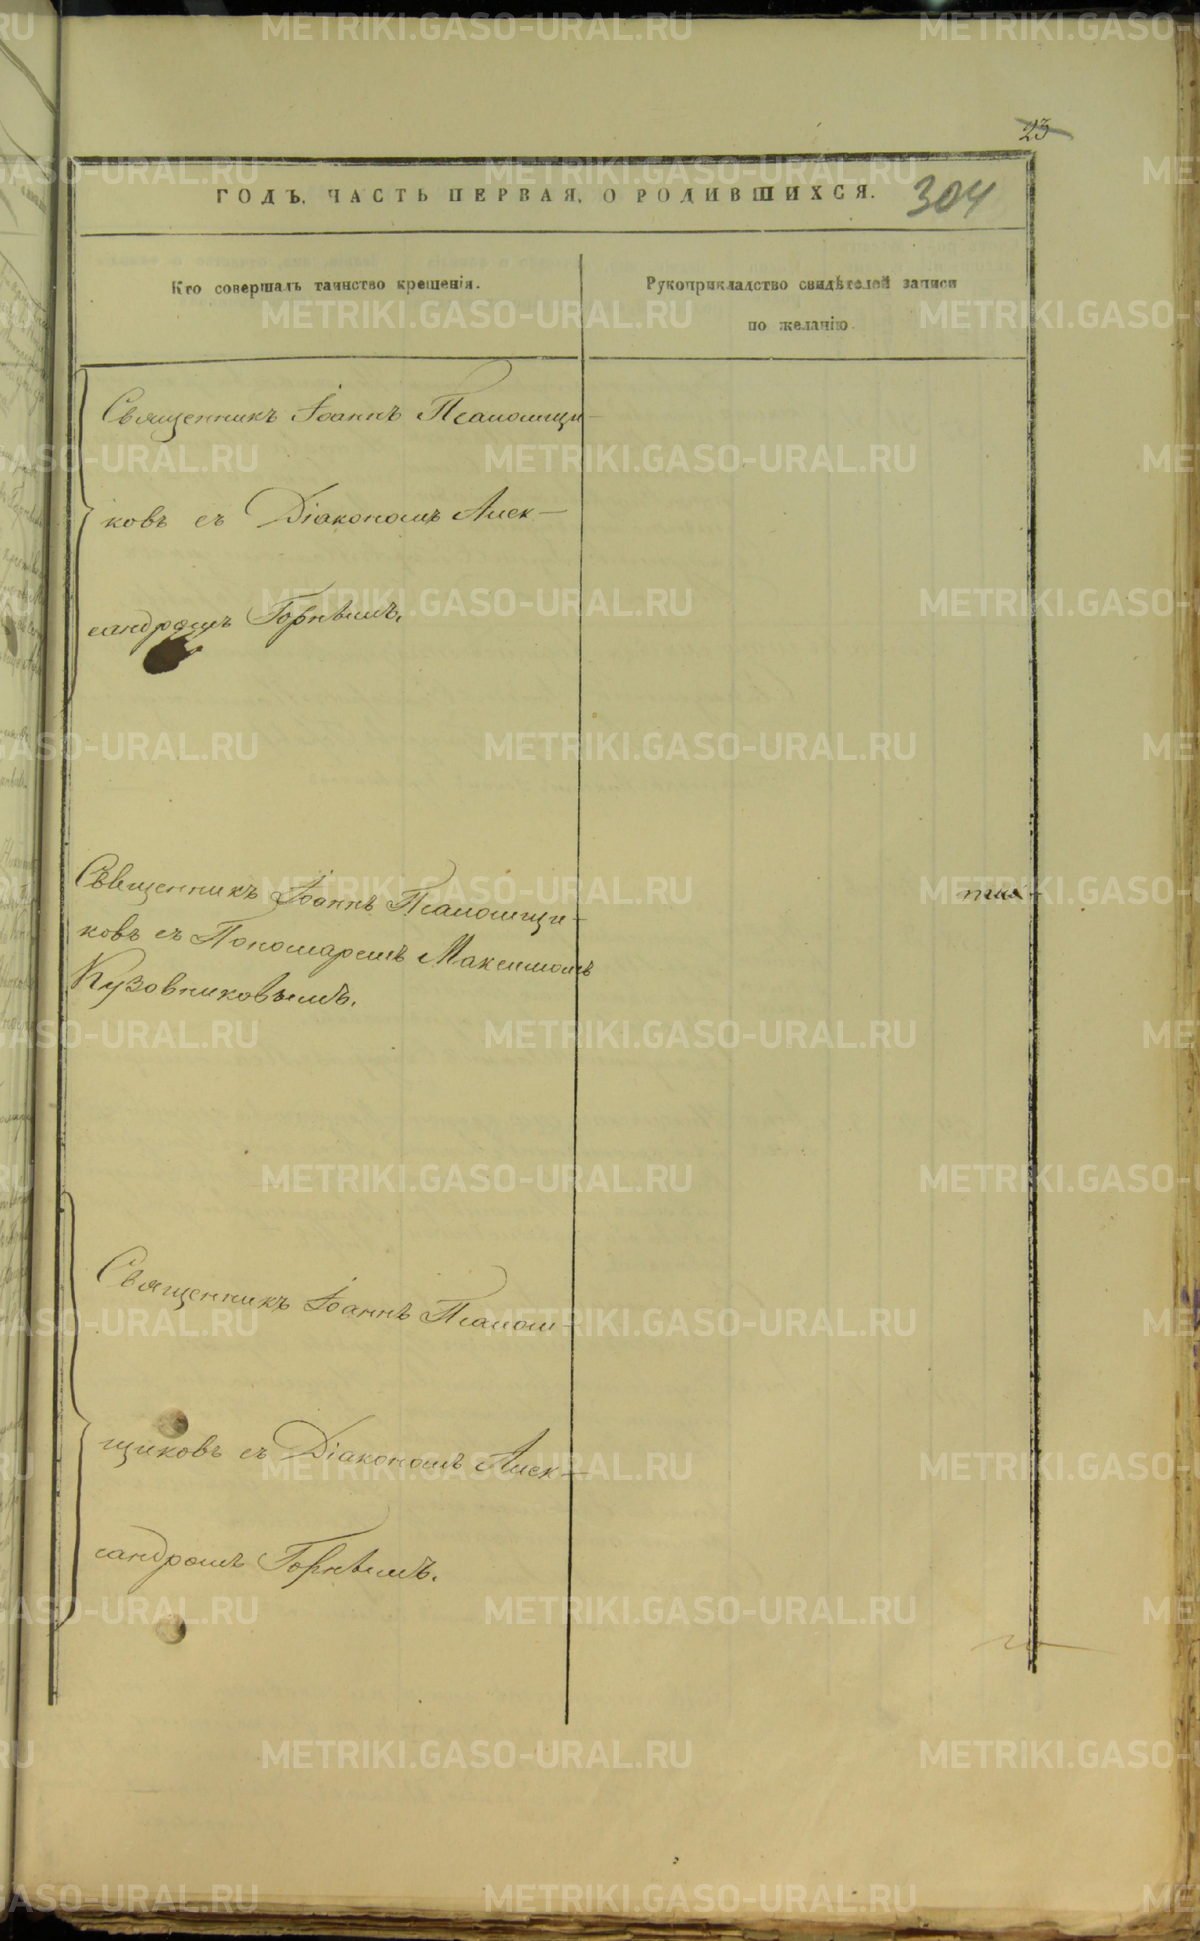 23
ГОДЪ, ЧАСТЬ ПЕРВАЯ, О РОДИВШИХСЯ.
304
Кто совершалъ таинство крещенія.
Рукоприкладство свидѣтелей записи
по желанію.
Священникъ Іоаннъ Псаломщи-
ковъ съ Діакономъ Алек-
сандромъ Горнымъ.
Священникъ Іоаннъ Псаломщи-
ковъ съ Пономаремъ Максимомъ
Кузовниковымъ.
Священникъ Іоаннъ Псалом-
щиковъ съ Діакономъ Алек-
сандромъ Горнымъ.
METRIKI.GASO-URAL.RU